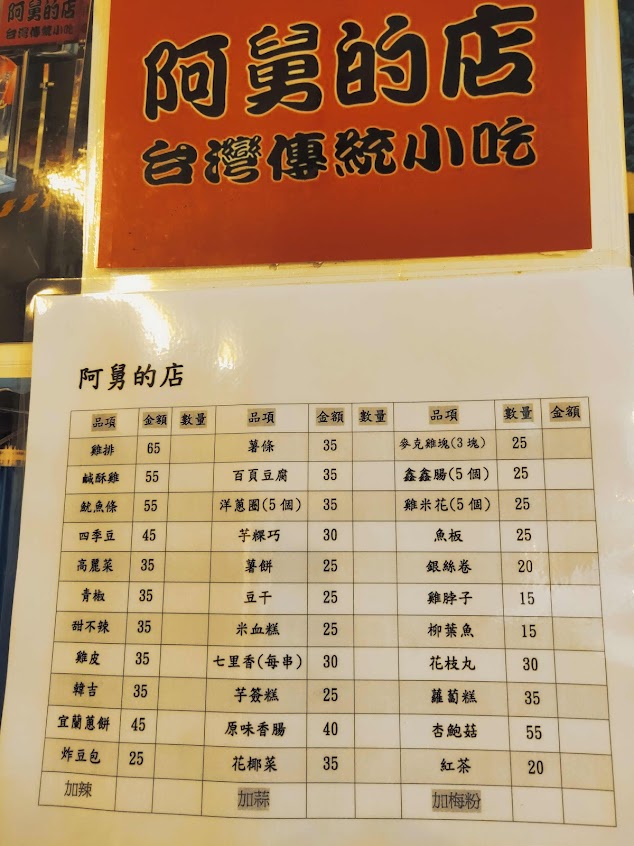 阿舅的店
台灣傳統小吃
阿舅的店
台灣傳統小吃
阿舅的店
品項 金額 數量 品項 金額 數量 品項 數量 金額
雞排 65 薯條 35 麥克雞塊(3塊) 25
鹹酥雞 55 百頁豆腐 35 鑫鑫腸(5個) 25
魷魚條 55 洋蔥圈(5個) 35 雞米花(5個) 25
四季豆 45 芋粿巧 30 魚板 25
高麗菜 35 薯餅 25 銀絲卷 20
青椒 35 豆干 25 雞脖子 15
甜不辣 35 米血糕 25 柳葉魚 15
雞皮 35 七里香(每串) 30 花枝丸 30
韓吉 35 芋簽糕 25 蘿蔔糕 35
宜蘭蔥餅 45 原味香腸 40 杏鮑菇 55
炸豆包 25 花椰菜 35 紅茶 20
加辣 加蒜 加梅粉